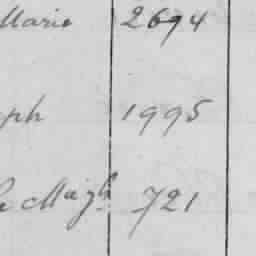 Marie 2694
ph 1995
721